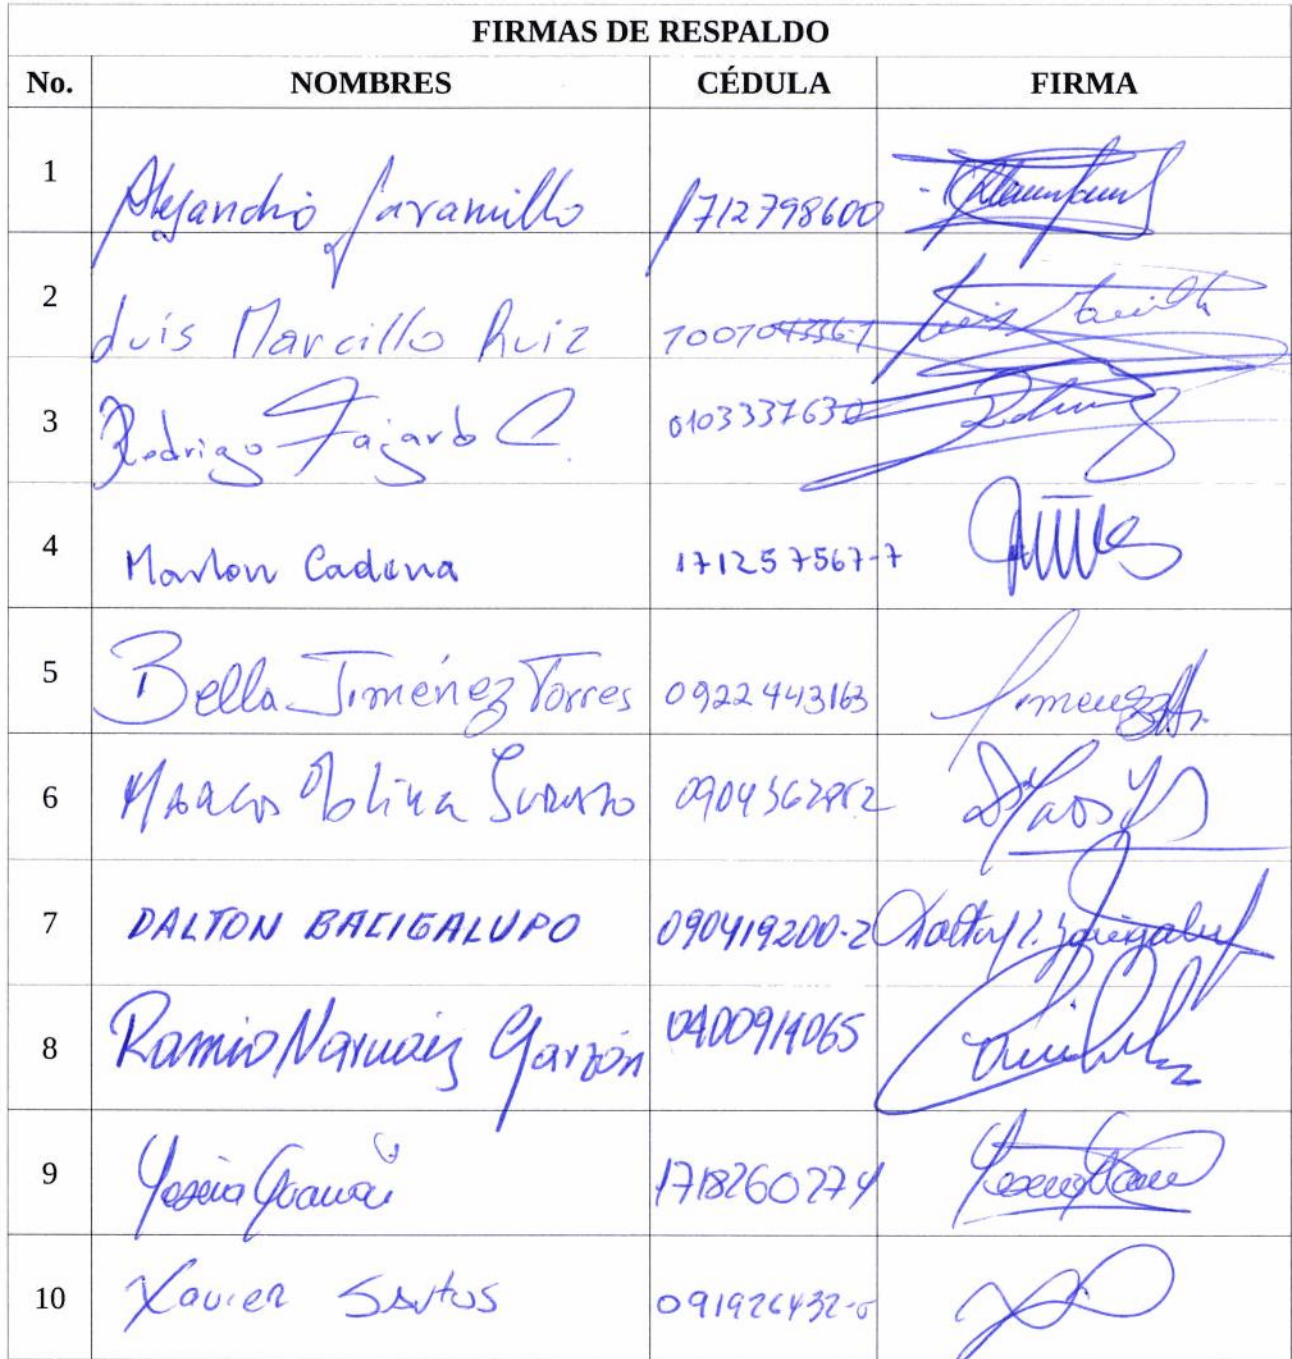 FIRMAS DE RESPALDO
No. NOMBRES CÉDULA FIRMA
1 Alejandro Jaramillo 1712798600
2 Luis Marcillo Ruiz 100104336-1
3 Rodrigo Fajardo C. 0103337632
4 Marlon Cadena 171257567-7
5 Bella Jiménez Torres 0922443163 Jimenez
6 Marcos Molina
7 DALTON BACIGALUPO 090419200-2 Dalton Bacigalupo
8 Ramiro Narváez Garzón 0400914065
9 1718260274
10 Xavier Santos 091926432-0